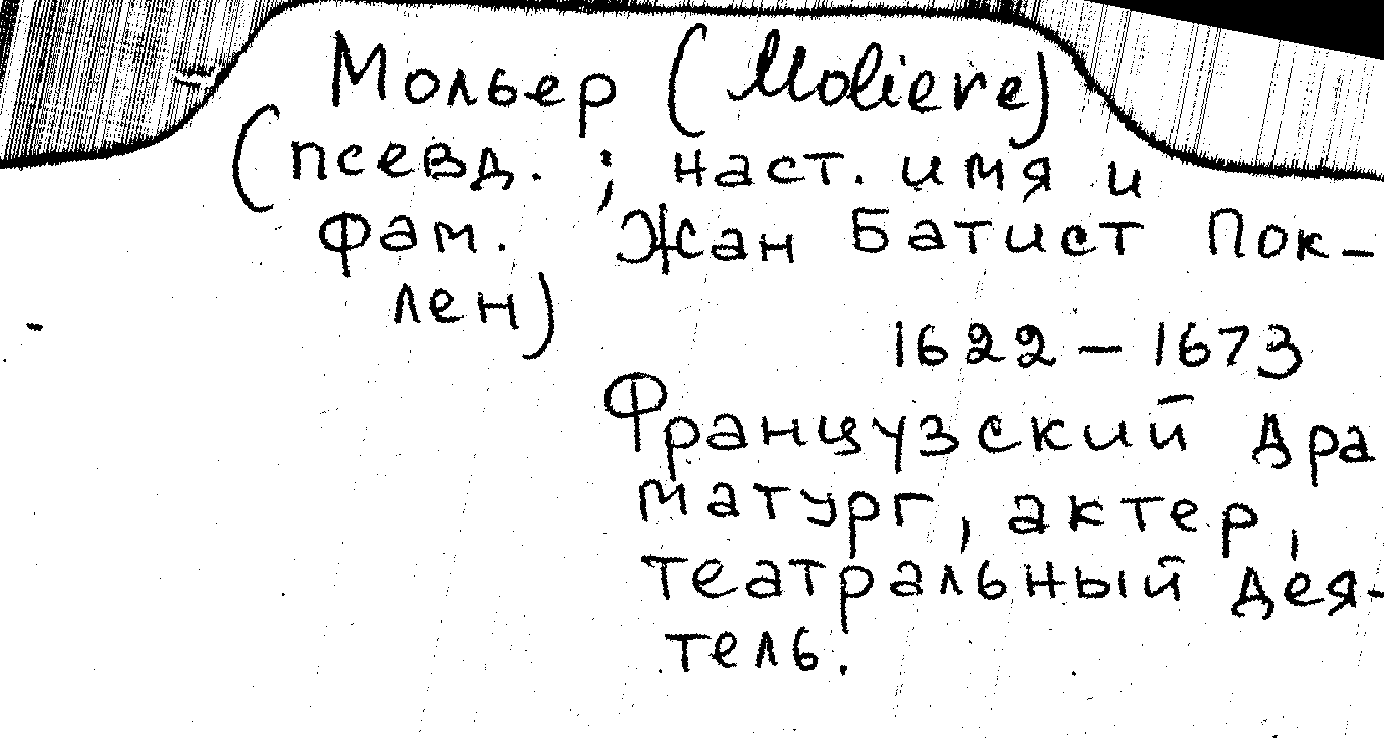 Мольер (Moliere)
(псевд. ; наст. имя и
фам. Жан Батист Пок-
лен)
1622 – 1673
Французский дра
матург, актер,
театральный дея-
тель.